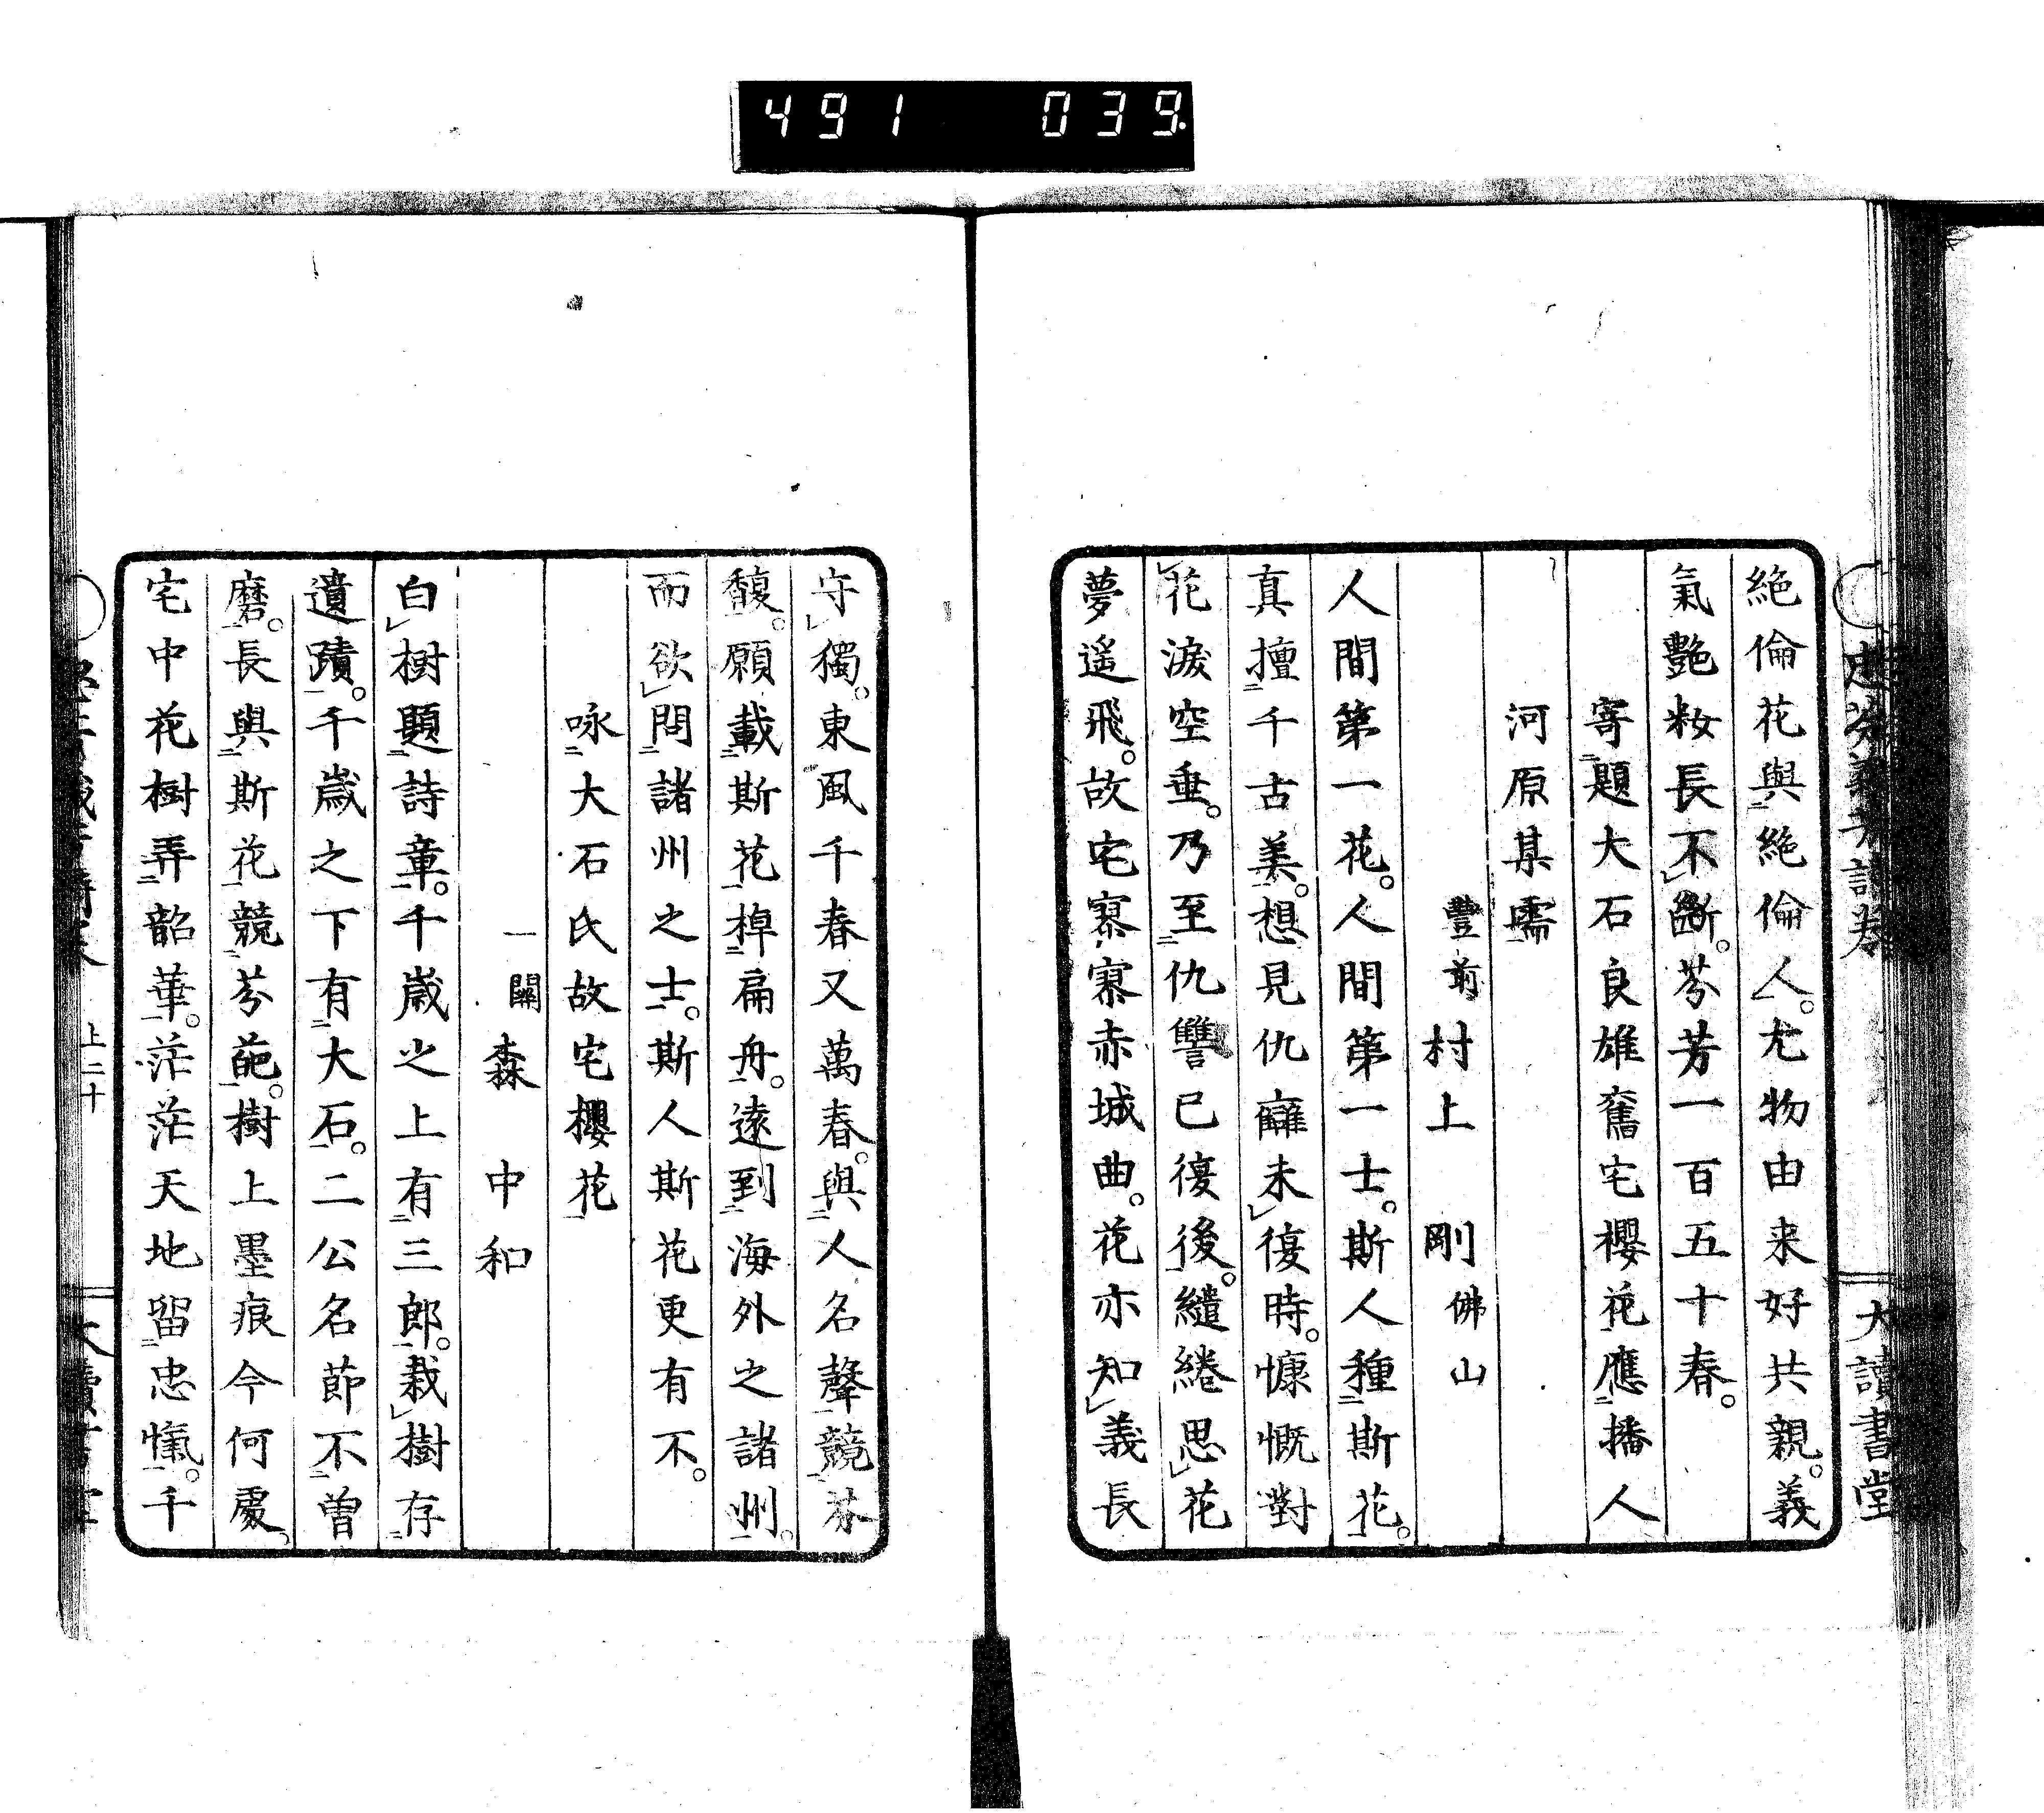 491 039.
絶倫花與絶倫人。尤物由来好共親。義
氣艷粧長不斷。芬芳一百五十春。
寄題大石良雄舊宅櫻花應播人
河原某需
豐前村上剛佛山
人間第一花。人間第一士。斯人種斯花。
真擅千古美。想見仇讎未復時。慷慨對
花淚空垂。乃至仇讐已復後。繾綣思花
夢遥飛。故宅寥寥赤城曲。花亦知義長
守獨。東風千春又萬春。與人名聲競芬
馥。願載斯花棹扁舟。遠到海外之諸州。
而欲問諸州之士。斯人斯花更有不。
咏大石氏故宅櫻花
一關森中和
白樹題詩章。千歳之上有三郎。栽樹存
遺蹟。千歳之下有大石。二公名節不曽
磨。長與斯花競芬葩。樹上墨痕今何處、
宅中花樹弄韶華。茫茫天地留忠愾。千
上二十
大讀書堂